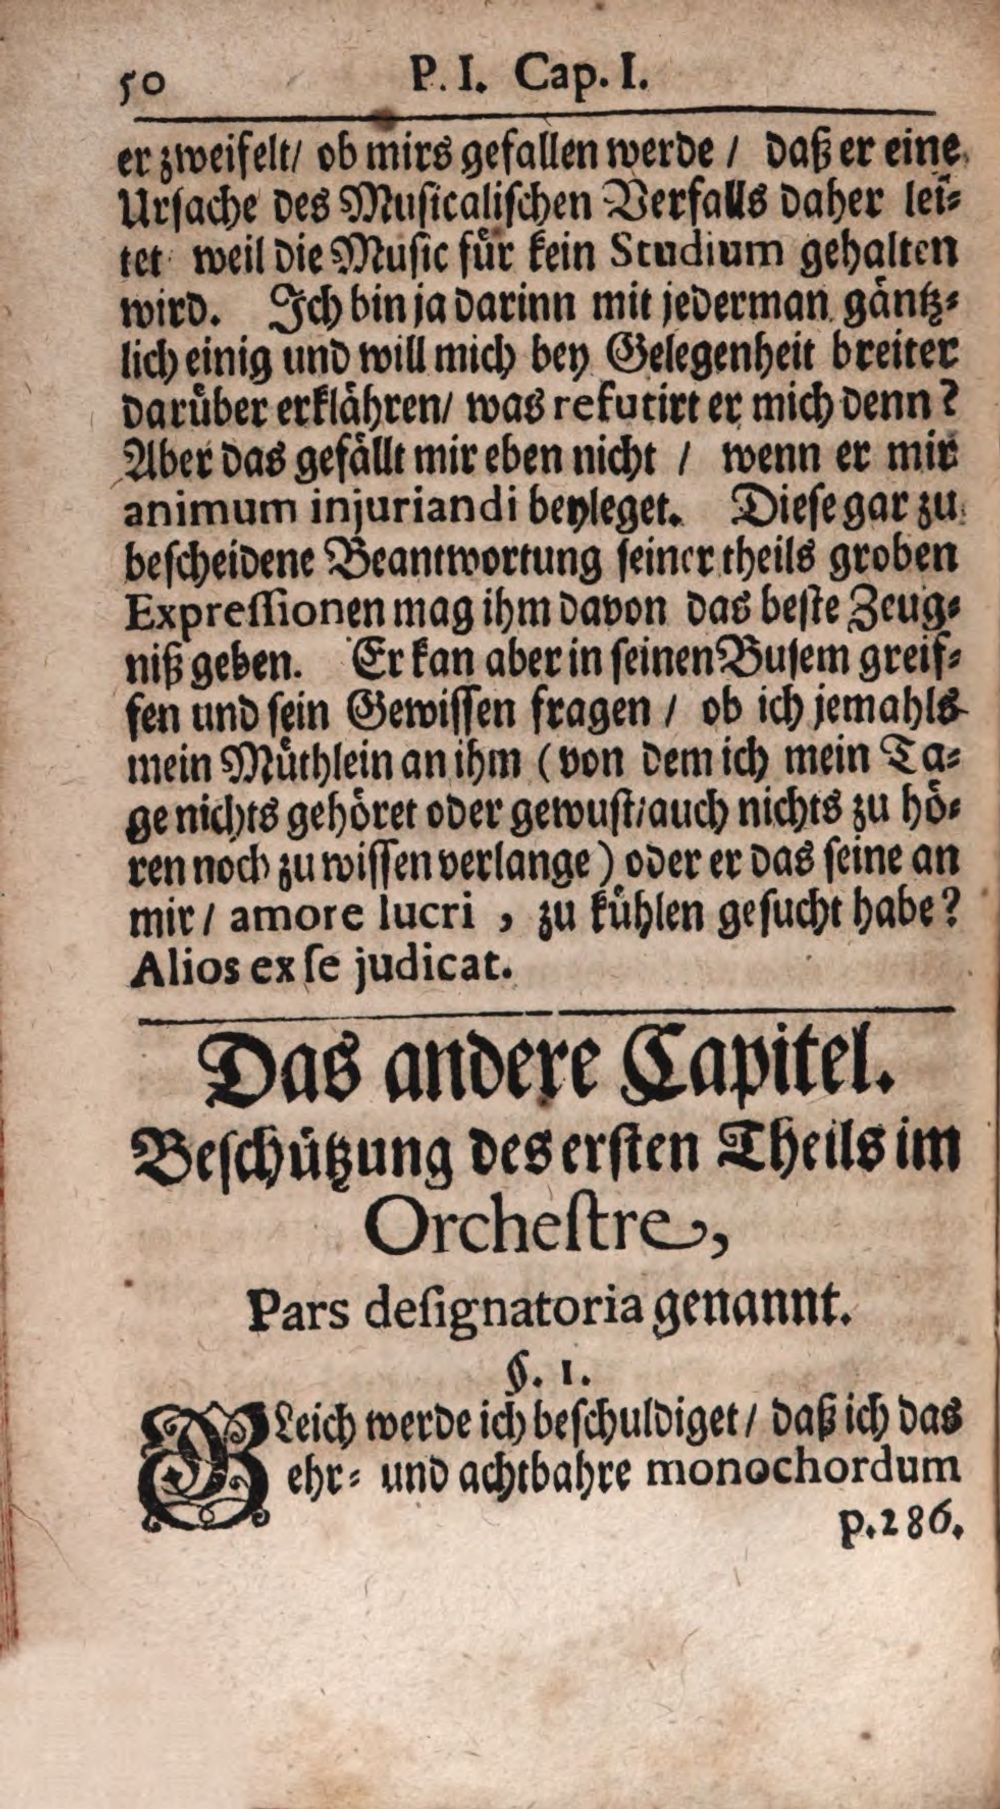 50 P. I. Cap. I.
er zweifelt/ ob mirs gefallen werde / daß er eine
Ursache des Musicalischen Verfalls daher lei-
tet weil die Music für kein Studium gehalten
wird. Ich bin ja darinn mit jederman gäntz-
lich einig und will mich bey Gelegenheit breiter
darüber erklähren/ was refutirt er mich denn?
Aber das gefällt mir eben nicht / wenn er mir
animum injuriandi beyleget. Diese gar zu
bescheidene Beantwortung seiner theils groben
Expressionen mag ihm davon das beste Zeug-
niß geben. Er kan aber in seinen Busem greif-
fen und sein Gewissen fragen / ob ich jemahls
mein Müthlein an ihm (von dem ich mein Ta-
ge nichts gehöret oder gewust/auch nichts zu hö-
ren noch zu wissen verlange) oder er das seine an
mir / amore lucri , zu kühlen gesucht habe?
Alios ex se judicat.
Das andere Capitel.
Beschützung des ersten Theils im
Orchestre,
Pars designatoria genannt.
§. 1.
GLeich werde ich beschuldiget / daß ich das
ehr- und achtbahre monochordum
p. 286.